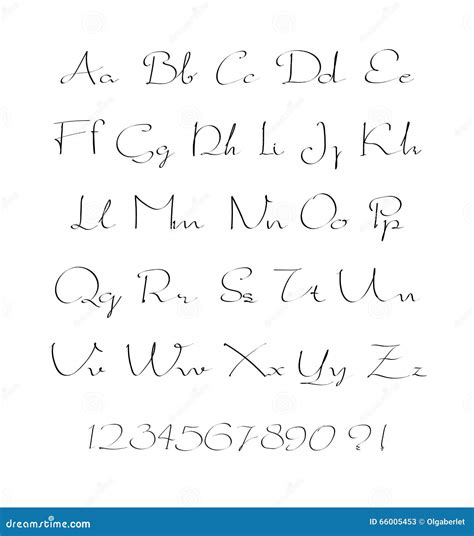 Aa Bb Cc Dd Ee
Ff Gg Hh Ii Jj Kk
Ll Mm Nn Oo Pp
Qq Rr Ss Tt Uu
Vv Ww Xx Yy Zz
1234567890?!
dreamstime.com
ID 66005453 © Olgaberlet